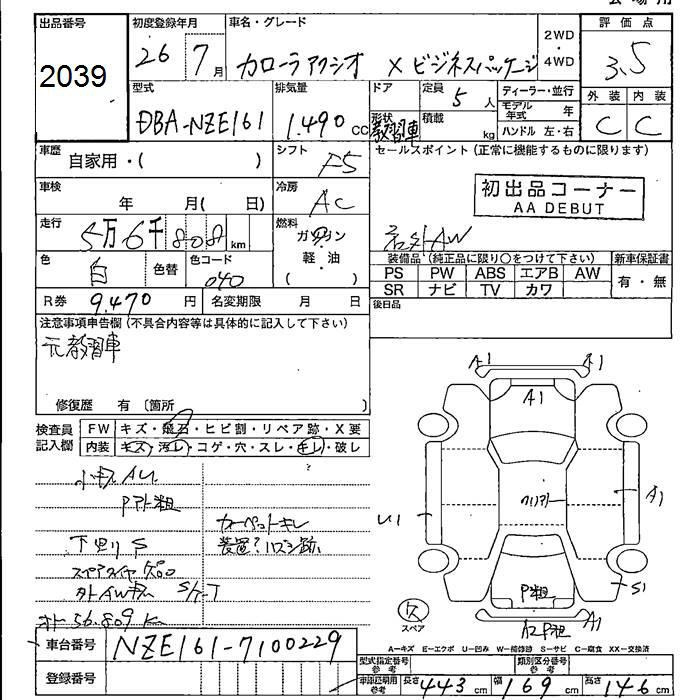 出品番号 初度登録年月 車名・グレード 2WD・4WD 評価点
2039 26 7月 カローラアクシオ X ビジネスパッケージ 3.5
型式 排気量 ドア 定員 5人 ディーラー・並行 外装 内装
DBA-NZE161 1.490 cc 形状 教習車 積載 kg モデル年式 年 C C
ハンドル 左・右
車歴 自家用・( ) シフト F5 セールスポイント (正常に機能するものに限ります)
車検 年 月( 日) 冷房 AC 初出品コーナー
AA DEBUT
走行 5万6千808km 燃料 ガソリン・軽・油 ( )
社外AW
色 白 色替 色コード 040 装備品(純正品に限り○をつけて下さい) 新車保証書
PS PW ABS エアB AW 有・無
SR ナビ TV カワ
R券 9.470円 名変期限 月 日 後日品
注意事項申告欄(不具合内容等は具体的に記入して下さい)
元教習車
修復歴 有 〔箇所 〕
検査員記入欄 FW キズ・飛石・ヒビ割・リペア跡・X要
内装 キズ・汚レ・コゲ・穴・スレ・キレ・破レ
A1 A1
A1
小キズ A U
Pアト粗
カーペットキレ
下廻り S 装置?ハズシ跡
スペアタイヤ欠
外AWキズ
オドー56.809K
クリアー
U1 A1
P粗 S1
欠 スペア
A2 P粗 A1
車台番号 NZE161-7100229
A－キズ E－エクボ U－凹み W－補修跡 S－サビ C－腐食 XX－交換済
型式指定番号 参考 類別区分番号 参考
登録番号 車庫証明用 参考 長さ 443cm 幅 169cm 高さ 146cm